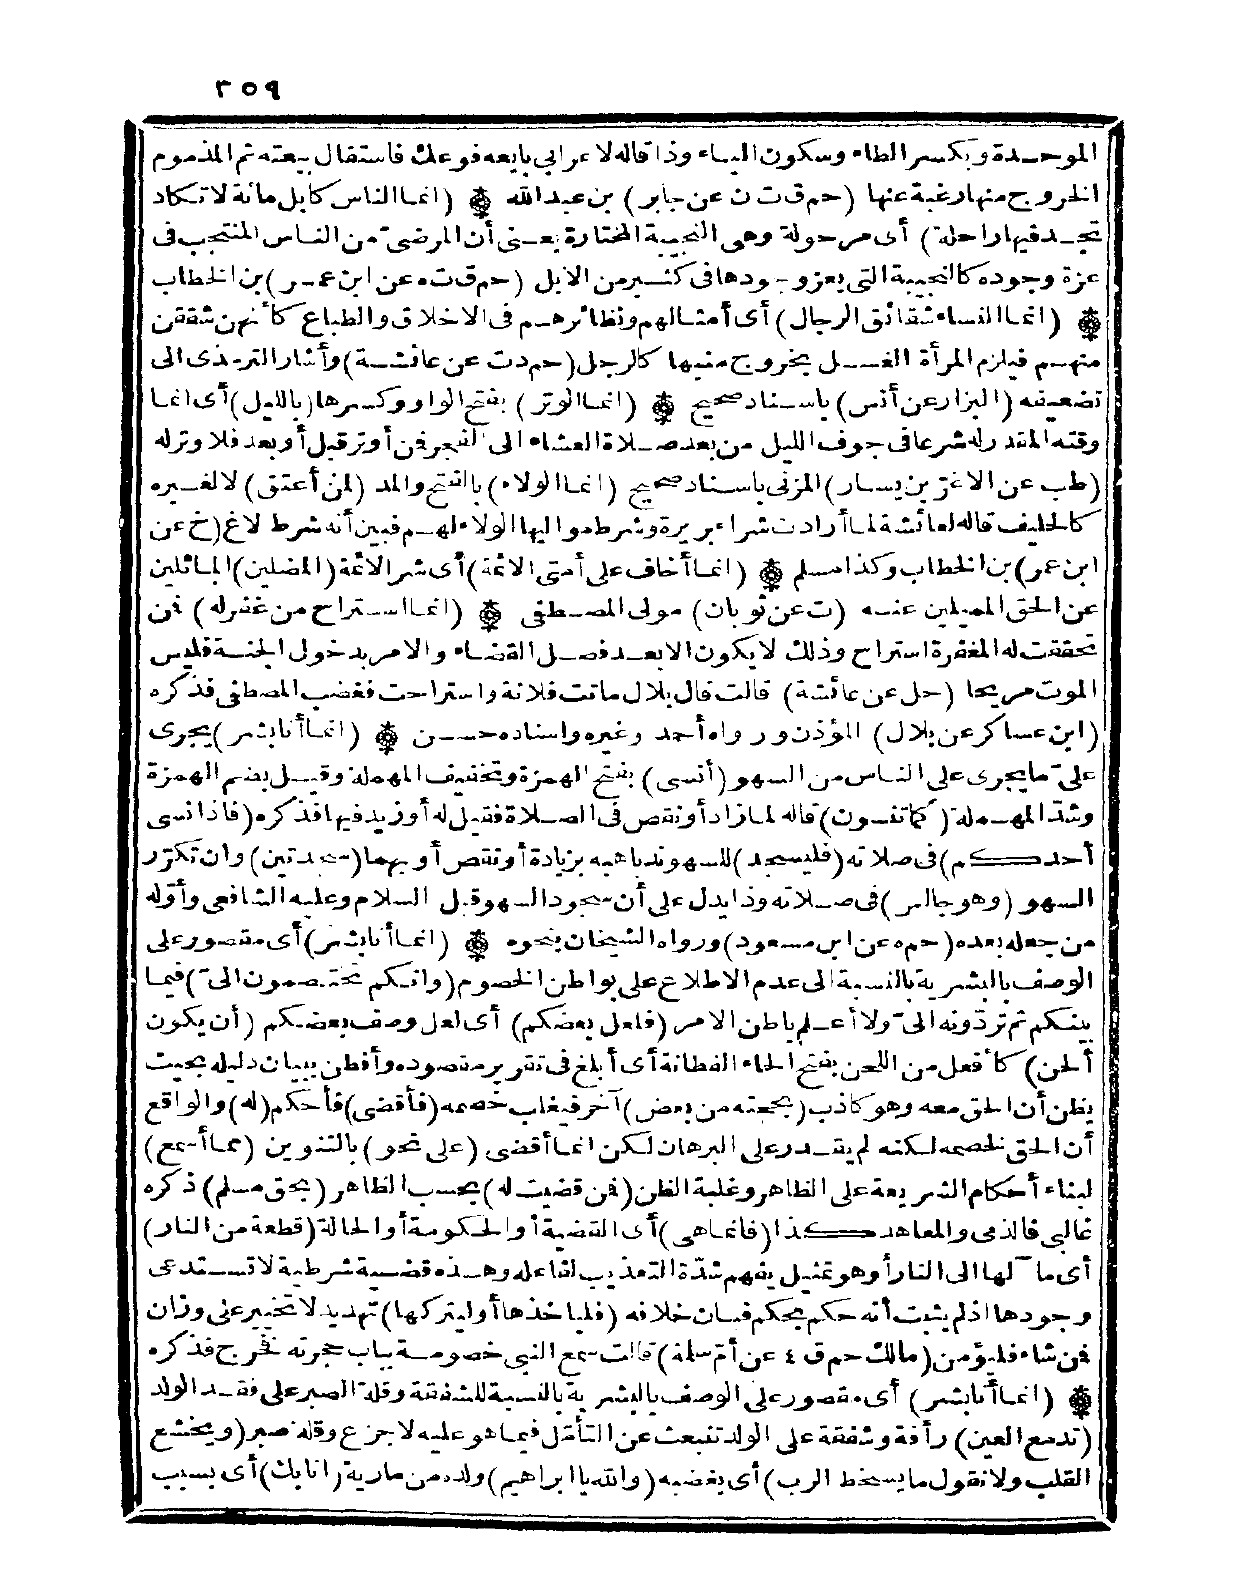 ٣٥٩
الموحدة وبكسر الطاء وسكون الياء وذا قاله لاعرابي بايعه فوعك فاستقال بيعته ثم المذموم
الخروج منها رغبة عنها (حم ق ت ن عن جابر) بن عبد الله ۞ (انما الناس كابل مائة لا تكاد
تجد فيها راحلة) أى مرحولة وهى النجيبة المختارة يعنى أن المرضىّ من الناس المنتجب فى
عزة وجوده كالنجيبة التى يعز وجودها فى كثير من الابل (حم ق ت ه عن ابن عمر) بن الخطاب
۞ (انما النساء شقائق الرجال) أى أمثالهم ونظائرهم فى الاخلاق والطباع كأنهن شققن
منهم فيلزم المرأة الغسل بخروج منيها كالرجل (حم د ت عن عائشة) وأشار الترمذى الى
تضعيفه (البزار عن أنس) باسناد صحيح ۞ (انما الوتر) بفتح الواو وكسرها (بالليل) أى انما
وقته المقدر له شرعا فى جوف الليل من بعد صلاة العشاء الى الفجر فمن أوتر قبل أو بعد فلا وتر له
(طب عن الاغر بن يسار) المزنى باسناد صحيح (انما الولاء) بالفتح والمد (لمن أعتق) لا لغيره
كالحليف قاله لعائشة لما أرادت شراء بريرة وشرط مواليها الولاء لهم فبين أنه شرط لاغ (خ عن
ابن عمر) بن الخطاب وكذا مسلم ۞ (انما أخاف على أمتى الائمة) أى شر الائمة (المضلين) المائلين
عن الحق المميلين عنه (ت عن ثوبان) مولى المصطفى ۞ (انما استراح من غفر له) فمن
تحققت له المغفرة استراح وذلك لا يكون الا بعد فصل القضاء والامر بدخول الجنة فليس
الموت مريحا (حل عن عائشة) قالت قال بلال ماتت فلانة واستراحت فغضب المصطفى فذكره
(ابن عساكر عن بلال) المؤذن ورواه أحمد وغيره واسناده حسن ۞ (انما أنا بشر) يجرى
علىّ ما يجرى على الناس من السهو (أنسى) بفتح الهمزة وتخفيف المهملة وقيل بضم الهمزة
وشدّ المهملة (كما تنسون) قاله لما زاد أو نقص فى الصلاة فقيل له أو زيد فيها فذكره (فاذا نسى
أحدكم) فى صلاته (فليسجد) للسهو ندبا هبه بزيادة أو نقص أو بهما (سجدتين) وان تكرّر
السهو (وهو جالس) فى صلاته وذا يدل على أن سجود السهو قبل السلام وعليه الشافعى وأوّله
من جعله بعده (حم ه عن ابن مسعود) ورواه الشيخان بنحوه ۞ (انما أنا بشر) أى مقصور على
الوصف بالبشرية بالنسبة الى عدم الاطلاع على بواطن الخصوم (وانكم تختصمون الىّ) فيما
بينكم ثم تردّونه الىّ ولا أعلم باطن الامر (فلعل بعضكم) أى لعل وصف بعضكم (أن يكون
ألحن) كأفعل من اللحن بفتح الحاء الفطانة أى أبلغ فى تقرير مقصوده وأفطن ببيان دليله بحيث
يظن أن الحق معه وهو كاذب (بحجته من بعض) آخر فيغلب خصمه (فأقضى) فأحكم (له) والواقع
أن الحق لخصمه لكنه لم يقدر على البرهان لكن انما أقضى (على نحو) بالتنوين (مما أسمع)
لبناء أحكام الشريعة على الظاهر وغلبة الظن (فمن قضيت له) بحسب الظاهر (بحق مسلم) ذكره
غالبى فالذمى والمعاهد كذا (فانما هى) أى القضية أو الحكومة أو الحالة (قطعة من النار)
أى مآلها الى النار أو هو تمثيل يفهم شدّة التعذيب لفاعله وهذه قضية شرطية لا تستدعى
وجودها اذ لم يثبت أنه حكم بحكم فبان خلافه (فليأخذها أو ليتركها) تهديد لا تخيير على وزان
فمن شاء فليؤمن (مالك حم ق ٤ عن أمّ سلمة) قالت سمع النبى خصومة بباب حجرته فخرج فذكره
۞ (انما أنا بشر) أى مقصور على الوصف بالبشرية بالنسبة للشفقة وقلة الصبر على فقد الولد
(تدمع العين) رأفة وشفقة على الولد تنبعث عن التأمّل فيما هو عليه لا جزع وقلة صبر (ويخشع
القلب ولا نقول ما يسخط الرب) أى يغضبه (والله يا ابراهيم) ولده من مارية (انا بك) أى بسبب